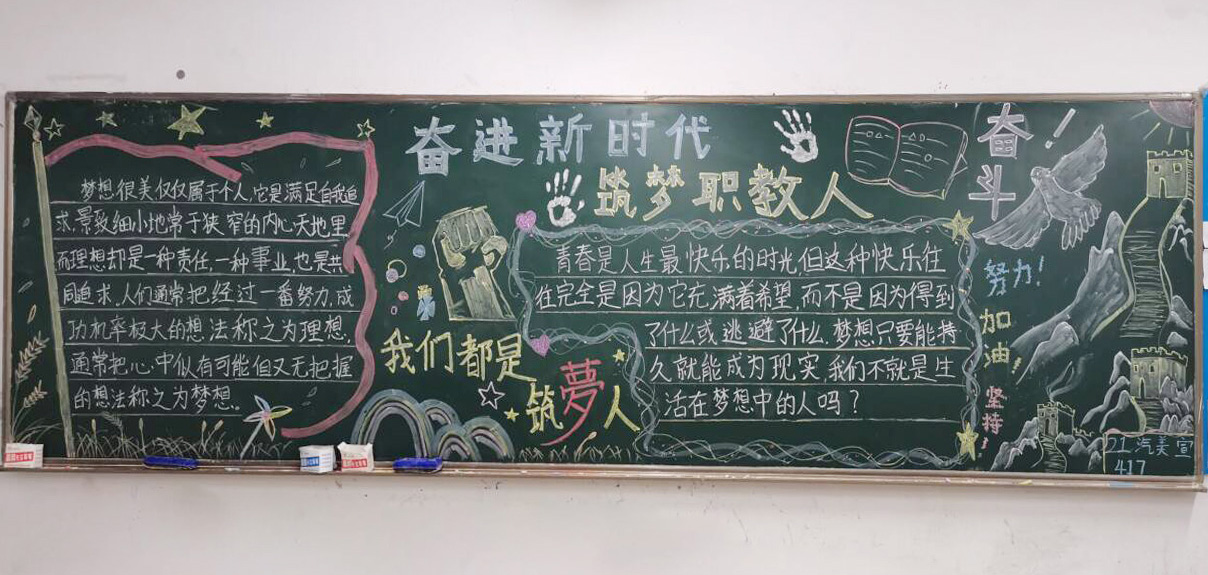 奋进新时代
筑梦职教人
梦想很美仅仅属于个人,它是满足自我追
求,景致细小地常于狭窄的内心天地里
而理想却是一种责任,一种事业,也是共
同追求,人们通常把经过一番努力,成
功机率极大的想法称之为理想,
通常把心中似有可能但又无把握
的想法称之为梦想。
我们都是
筑夢人
青春是人生最快乐的时光,但这种快乐往
往完全是因为它充满着希望,而不是因为得到
了什么或逃避了什么,梦想只要能持
久就能成为现实,我们不就是生
活在梦想中的人吗?
奋斗!
努力!
加油!
坚持!
21.汽美宣
417